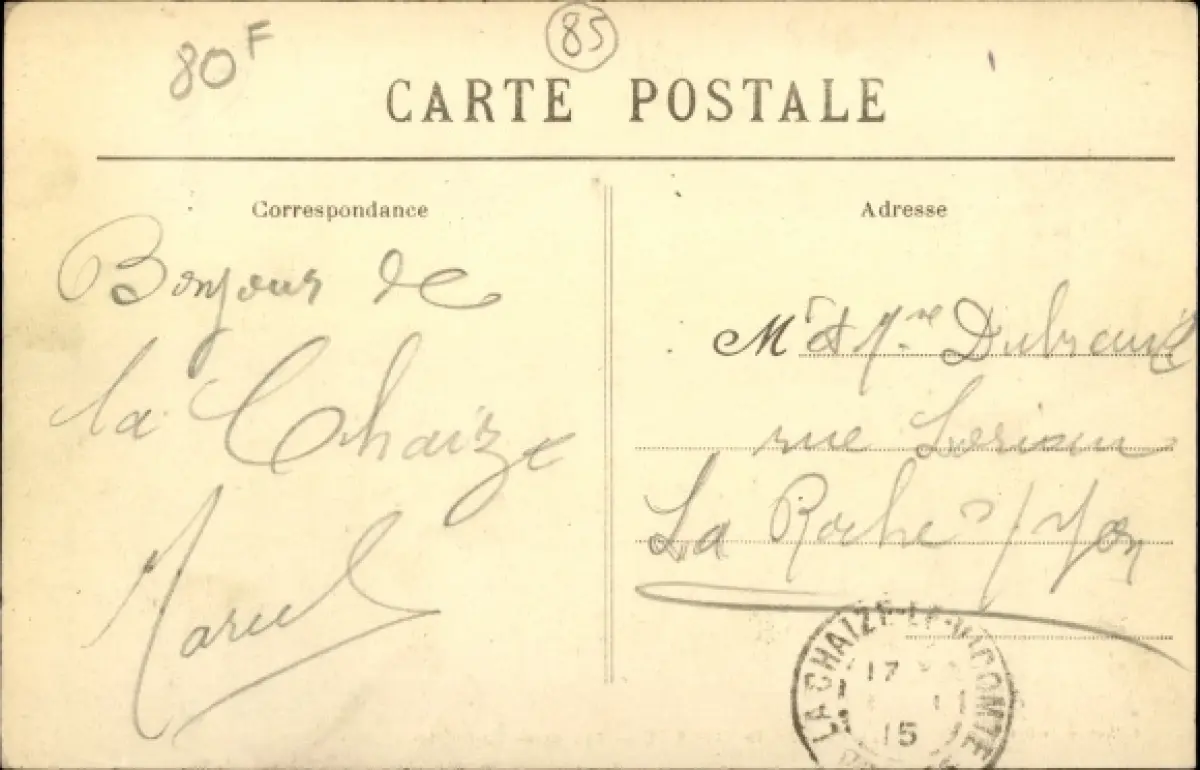 80F
85
CARTE POSTALE
Correspondance
Adresse
Bonjour de
la Chaize
Marcel
Mr et Mme Dubreuil
rue
La Roche s/ Yon
LA CHAIZE-LE-VICOMTE
17
11
15